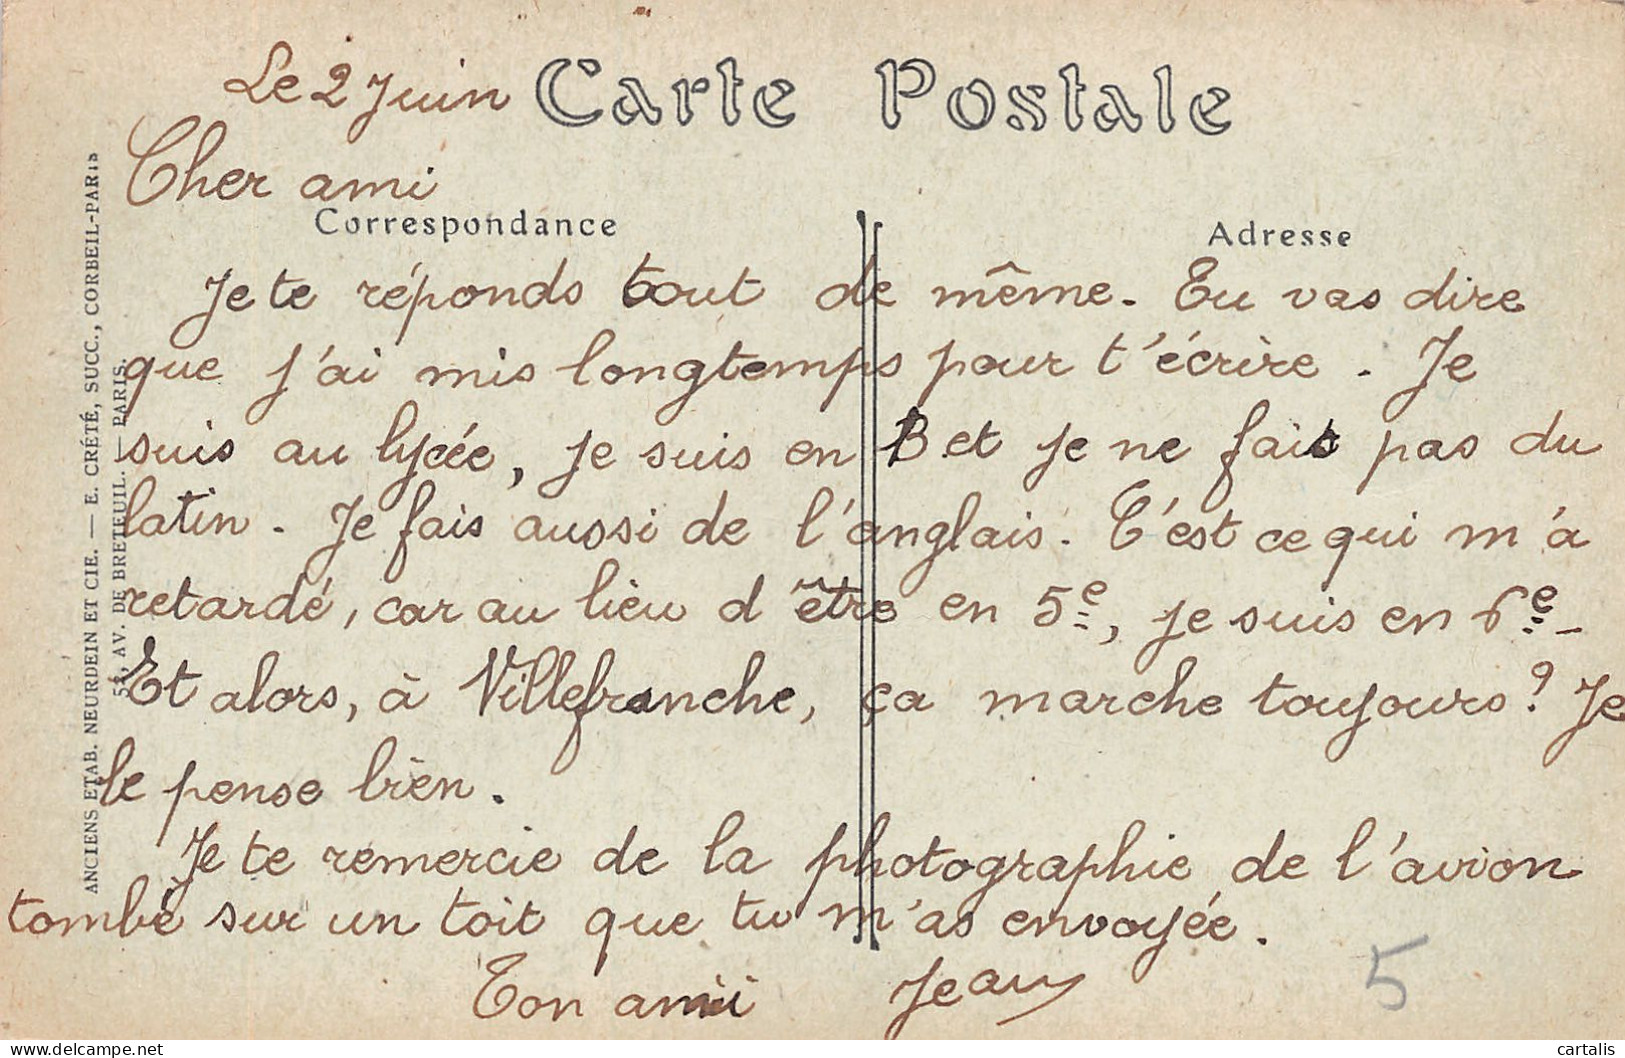 Le 2 Juin
Carte Postale
Cher ami
Correspondance
Adresse
Je te réponds tout de même. Tu vas dire
que j'ai mis longtemps pour t'écrire. Je
suis au lycée, je suis en B et je ne fais pas du
latin. Je fais aussi de l'anglais. C'est ce qui m'a
retardé, car au lieu d'être en 5e, je suis en 6e.
Et alors, à Villefranche, ça marche toujours? Je
le pense bien.
Je te remercie de la photographie de l'avion
tombé sur un toit que tu m'as envoyée.
Ton ami Jean
5
ANCIENS ETAB. NEURDEIN ET CIE. — E. CRÉTÉ, SUCC., CORBEIL-PARIS
52, AV. DE BRETEUIL. — PARIS.
cartalis